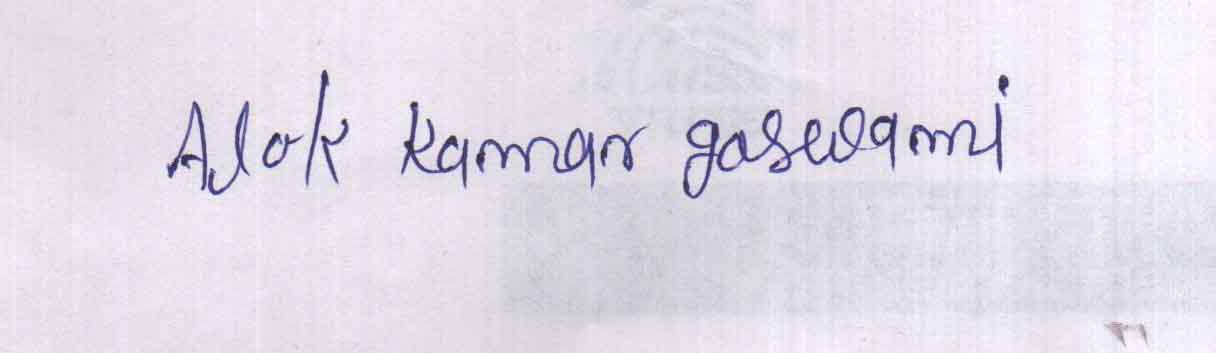 Alok kamar goswami